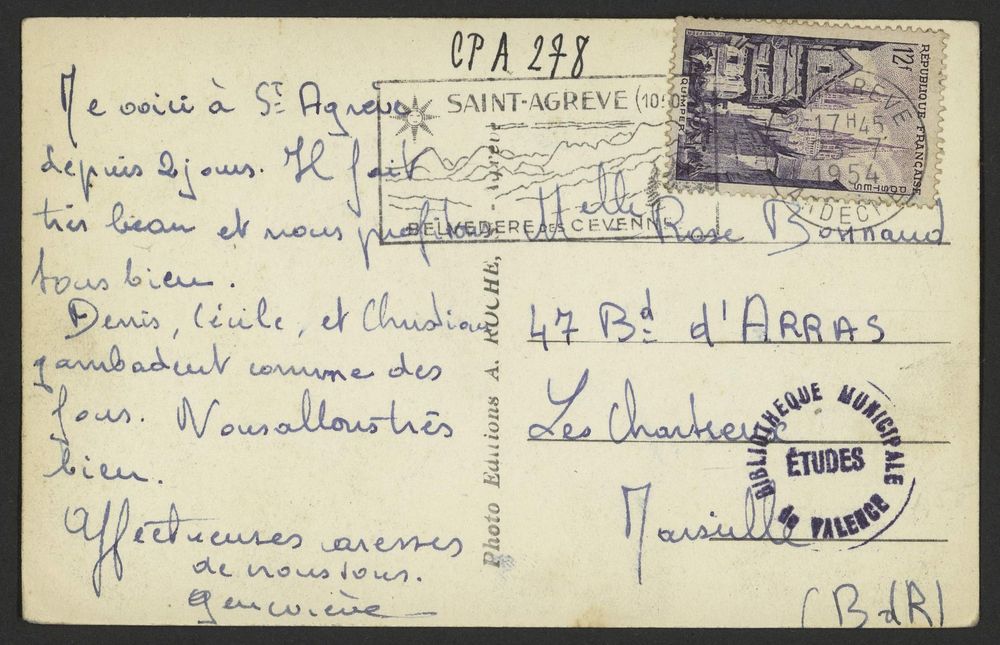 CPA 278
Me voici à St Agrève
depuis 2 jours. Il fait
très beau et nous profitons
tous bien.
Denis, Cécile, et Christian
gambadent comme des
fous. Nous allons très
bien.
Affectueuses caresses
de nous tous.
Geneviève
SAINT-AGREVE (10
BELVEDERE DES CEVENNES
Agrève
Photo Editions A. ROCHE,
REPUBLIQUE FRANÇAISE
POSTES
12f
QUIMPER
AGREVE
17H45
7
1954
ARDECHE
Melle Rose Bonnaud
47 Bd d'ARRAS
Les Chartreux
Marseille
(B d R)
BIBLIOTHEQUE MUNICIPALE
ÉTUDES
de VALENCE